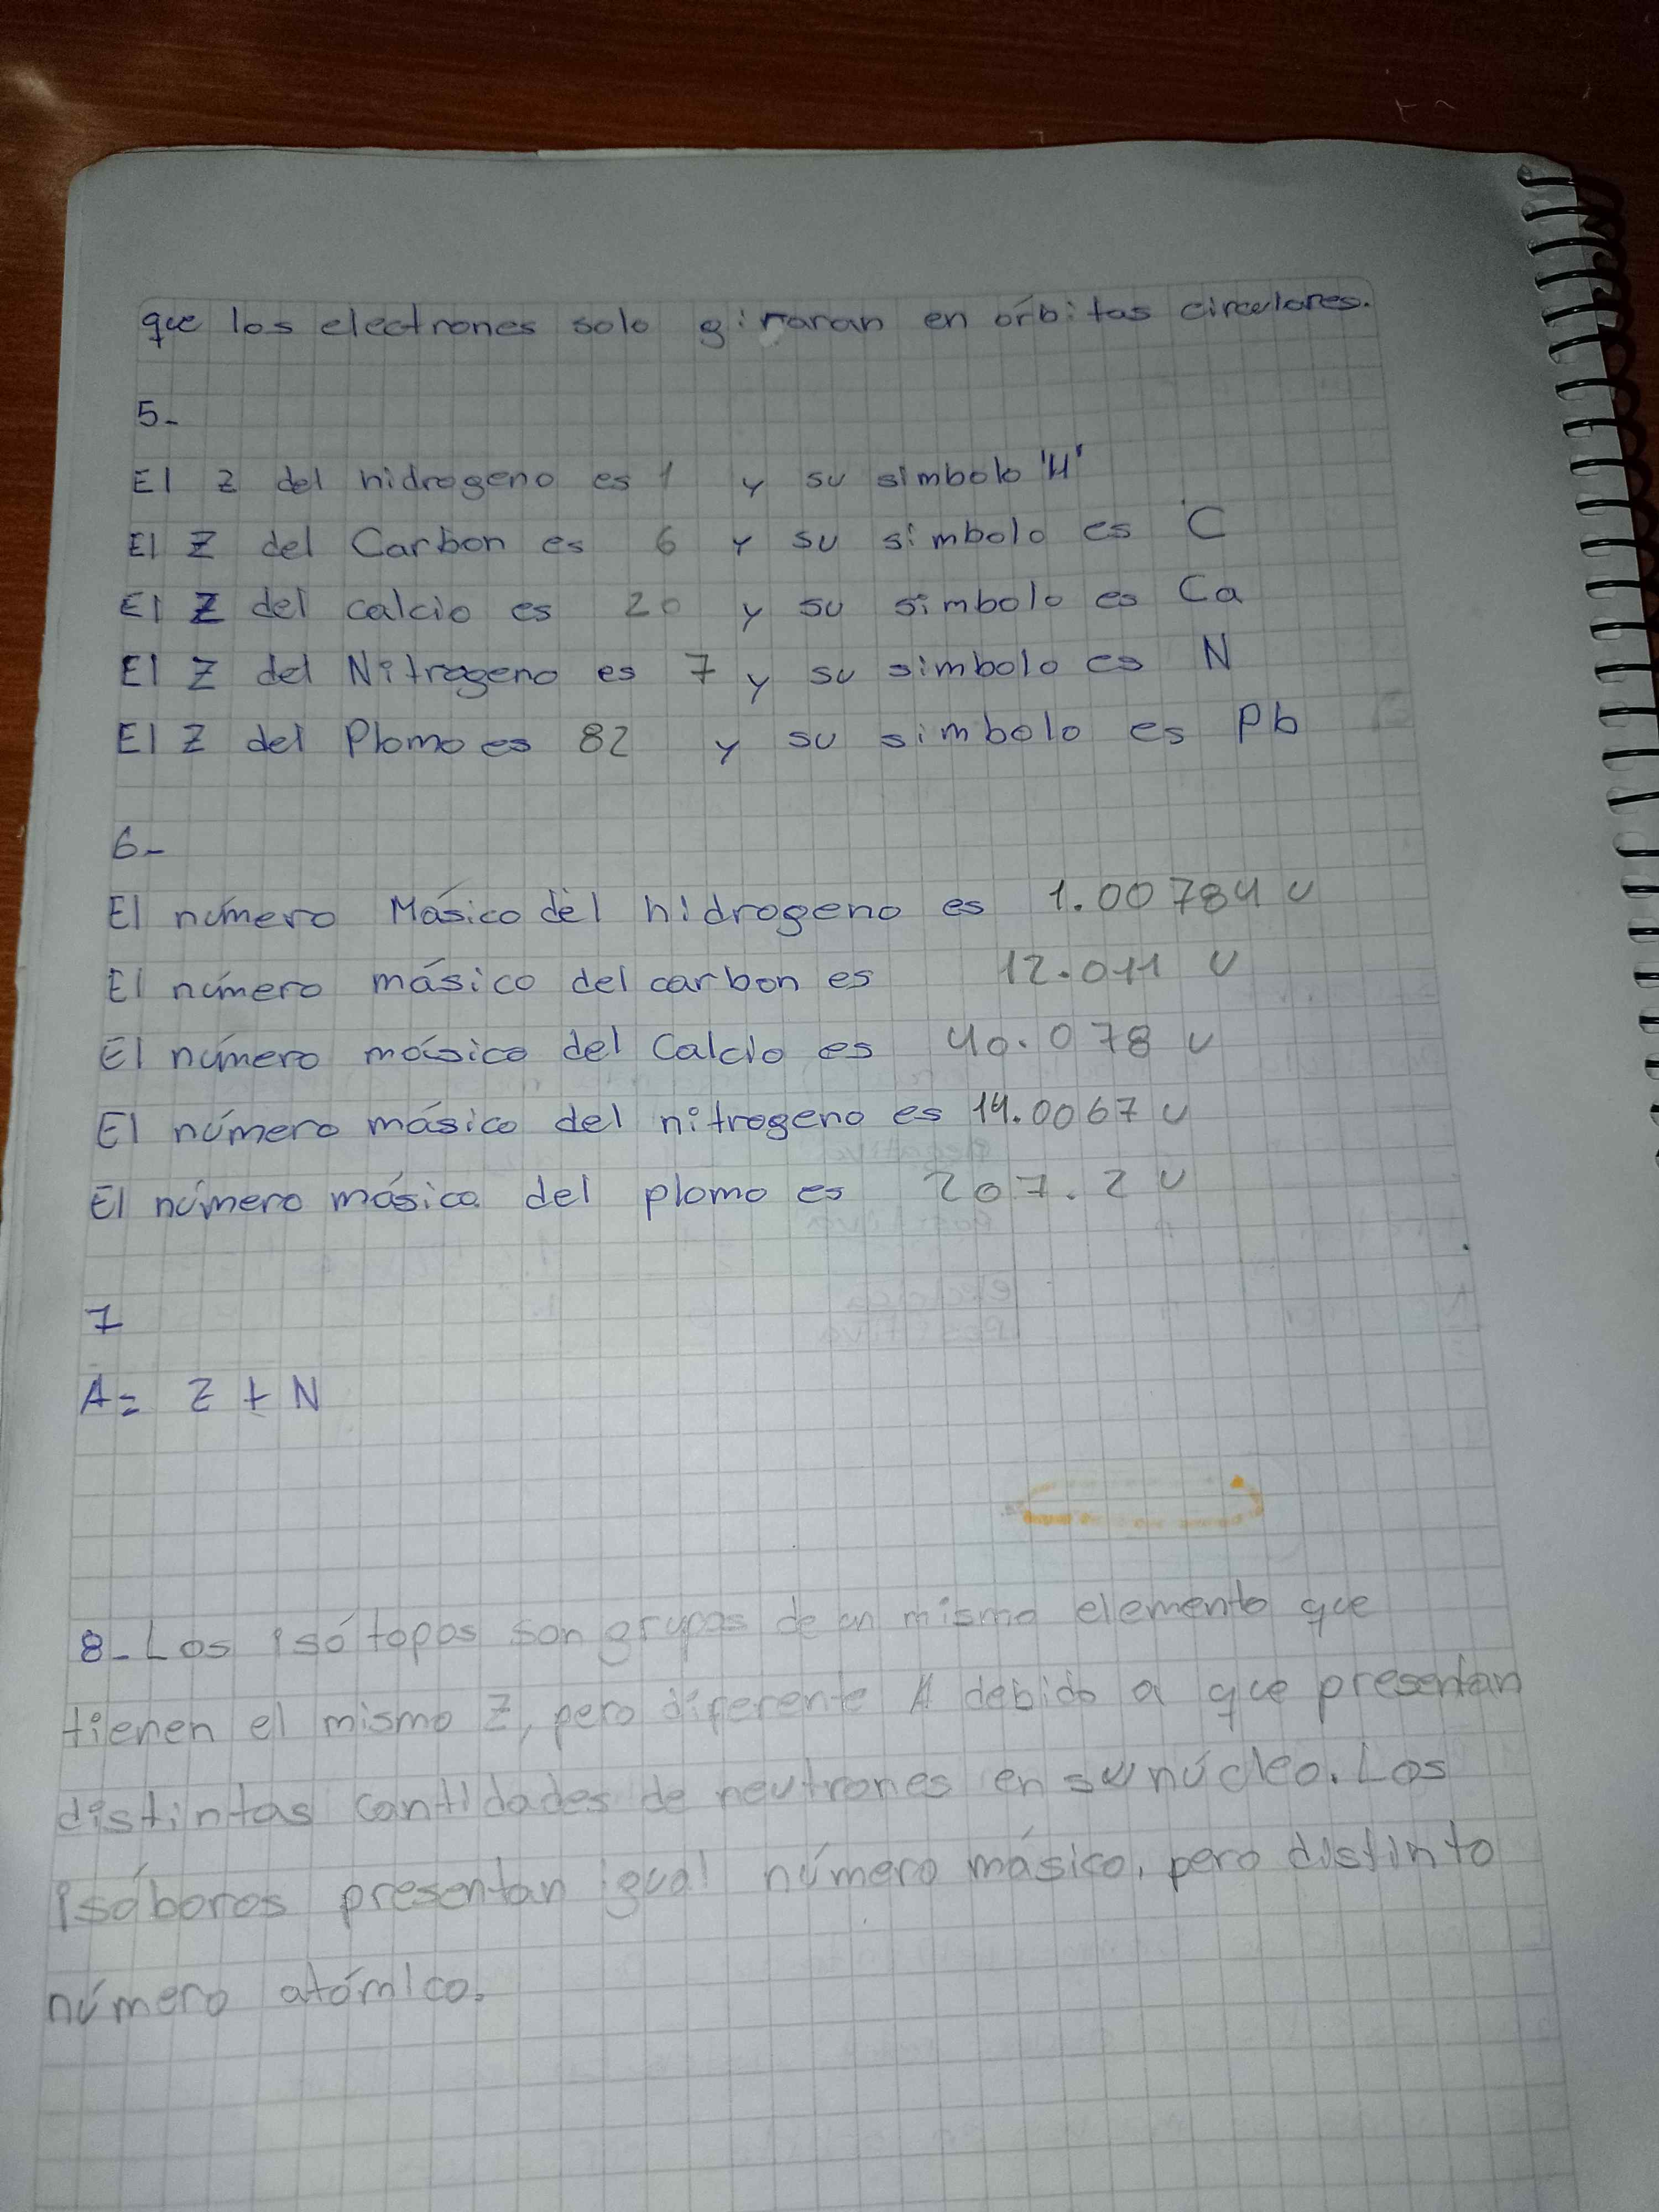 que los electrones solo giraran en órbitas circulares.
5-
El Z del hidrogeno es 1 y su simbolo 'H'
El Z del Carbon es 6 y su simbolo es C
El Z del calcio es 20 y su simbolo es Ca
El Z del Nitrogeno es 7 y su simbolo es N
El Z del Plomo es 82 y su simbolo es Pb
6-
El número Másico del hidrogeno es 1.00784 u
El número másico del carbon es 12.011 u
El número másico del Calcio es 40.078 u
El número másico del nitrogeno es 14.0067 u
El número másico del plomo es 207.2 u
7
A= Z + N
8- Los isótopos son grupos de un mismo elemento que
tienen el mismo Z, pero diferente A debido a que presentan
distintas cantidades de neutrones en su núcleo. Los
isóboros presentan igual número másico, pero distinto
número atómico.